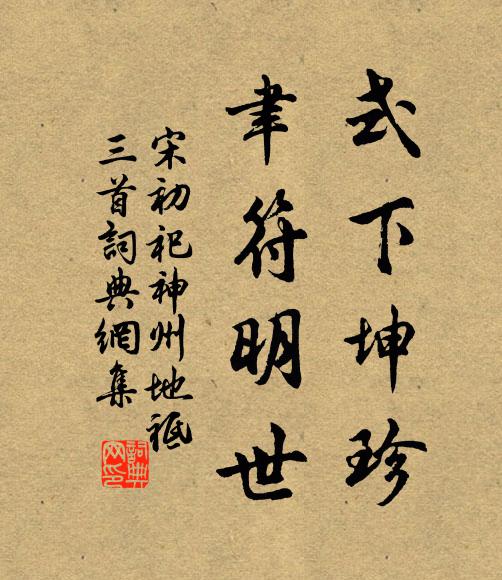 式下坤珍
聿符明世
宋初祀神州地祇
三首詞典網集
詞典
网印